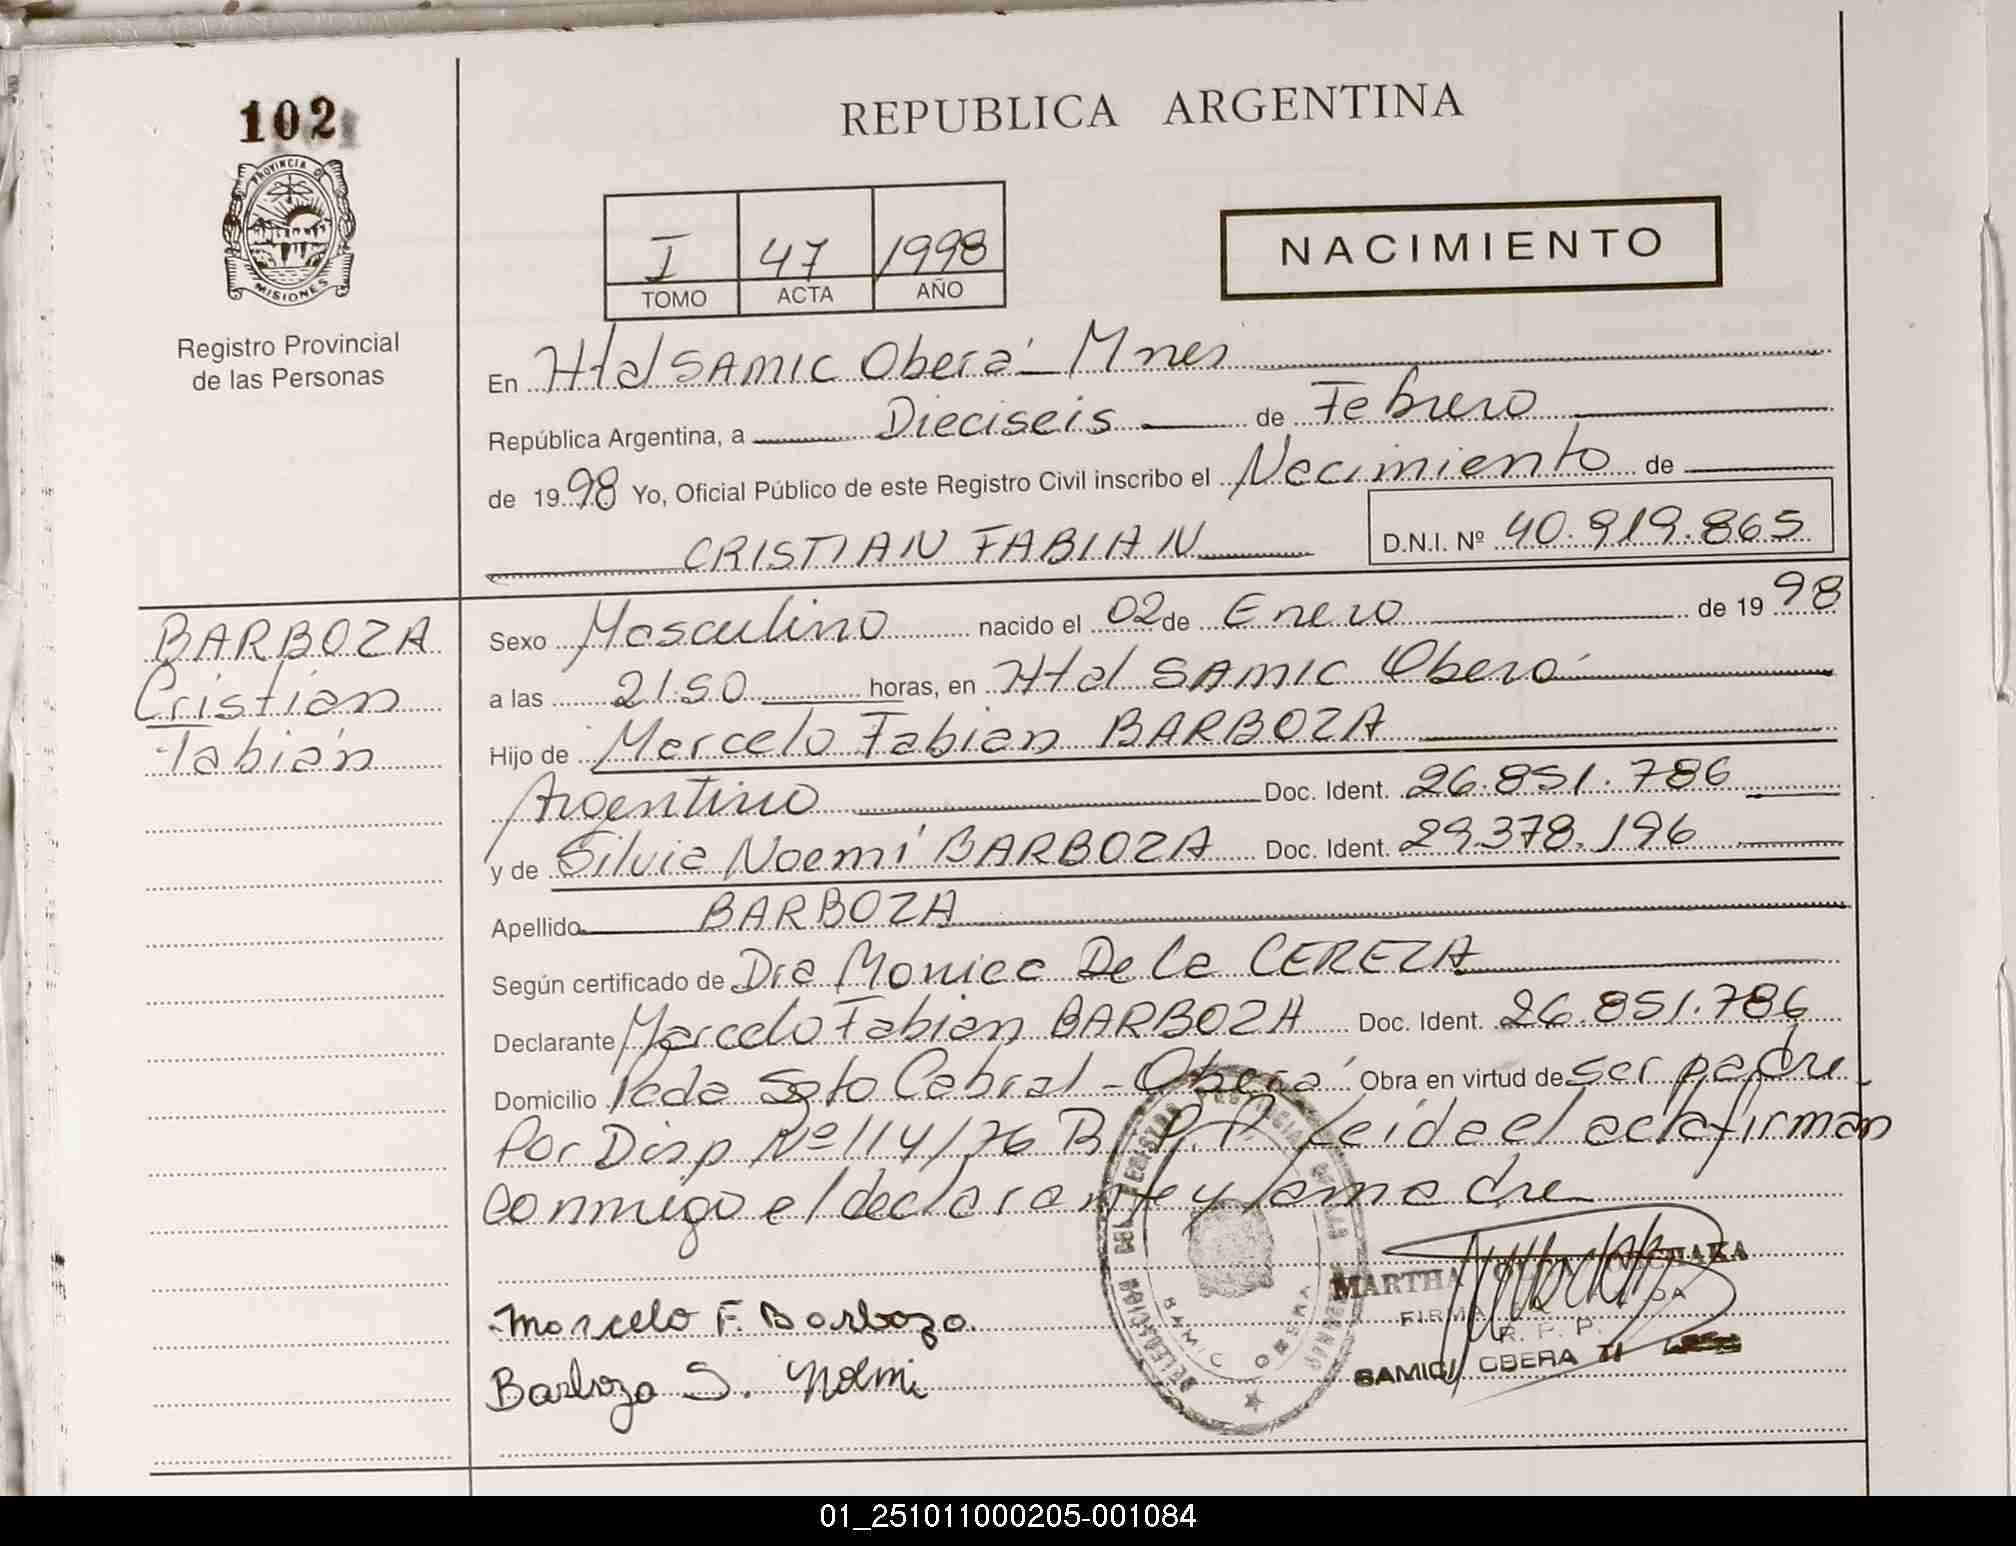 102
PROVINCIA DE
MISIONES
Registro Provincial
de las Personas
REPUBLICA ARGENTINA
I 47 1998
TOMO ACTA AÑO
NACIMIENTO
En Htal SAMIC Oberá - Mnes
República Argentina, a Dieciseis de Febrero
de 1998 Yo, Oficial Público de este Registro Civil inscribo el Nacimiento de
CRISTIAN FABIAN D.N.I. Nº 40.919.865
BARBOZA
Cristian
Fabián
Sexo Masculino nacido el 02 de Enero de 1998
a las 21:50 horas, en Htal SAMIC Oberá
Hijo de Marcelo Fabian BARBOZA
Argentino Doc. Ident. 26.851.786
y de Silvia Noemí BARBOZA Doc. Ident. 29.378.196
Apellido BARBOZA
Según certificado de Dra Monica De La CEREZA
Declarante Marcelo Fabian BARBOZA Doc. Ident. 26.851.786
Domicilio Pcda Soto Cabral - Oberá Obra en virtud de ser padre
Por Disp Nº 114/76 R.P.P. Leida el acta firman
conmigo el declarante y la madre
Marcelo F. Barboza.
Barboza S. Noemi
MARTHA
FIRMA
R. P. P.
SAMIC OBERA
01_251011000205-001084